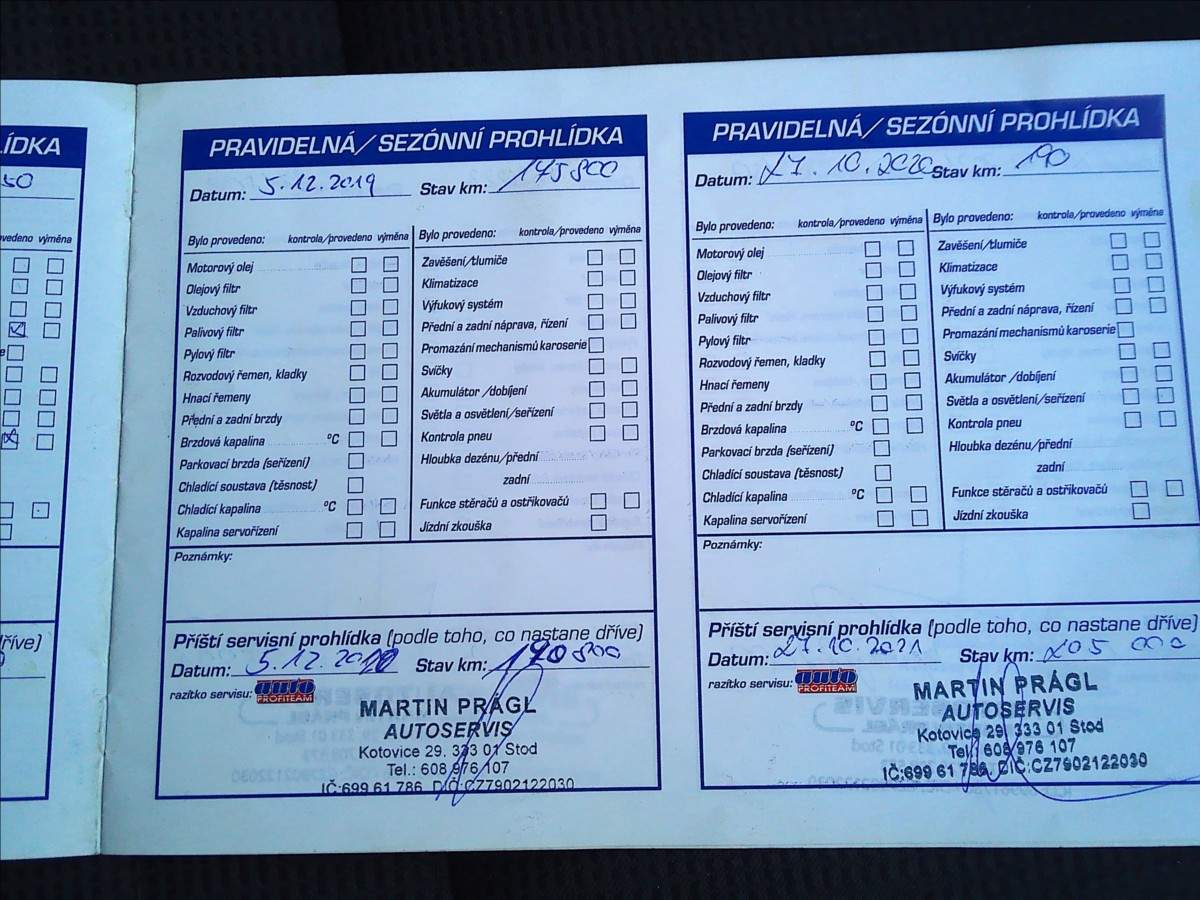 LÍDKA
50
vedeno výměna
dříve)
PRAVIDELNÁ/SEZÓNNÍ PROHLÍDKA
Datum: 5.12.2019 Stav km: 175800
Bylo provedeno: kontrola/provedeno výměna
Motorový olej
Olejový filtr
Vzduchový filtr
Palivový filtr
Pylový filtr
Rozvodový řemen, kladky
Hnací řemeny
Přední a zadní brzdy
Brzdová kapalina °C
Parkovací brzda (seřízení)
Chladící soustava (těsnost)
Chladící kapalina °C
Kapalina servořízení
Bylo provedeno: kontrola/provedeno výměna
Zavěšení/tlumiče
Klimatizace
Výfukový systém
Přední a zadní náprava, řízení
Promazání mechanismů karoserie
Svíčky
Akumulátor /dobíjení
Světla a osvětlení/seřízení
Kontrola pneu
Hloubka dezénu/přední
zadní
Funkce stěračů a ostřikovačů
Jízdní zkouška
Poznámky:
Příští servisní prohlídka (podle toho, co nastane dříve)
Datum: 5.12.2020 Stav km: 190800
razítko servisu: auto PROFITEAM
MARTIN PRÁGL
AUTOSERVIS
Kotovice 29, 333 01 Stod
Tel.: 608 976 107
IČ:699 61 786, DIČ:CZ7902122030
PRAVIDELNÁ/SEZÓNNÍ PROHLÍDKA
Datum: 27.10.2020 Stav km: 190
Bylo provedeno: kontrola/provedeno výměna
Motorový olej
Olejový filtr
Vzduchový filtr
Palivový filtr
Pylový filtr
Rozvodový řemen, kladky
Hnací řemeny
Přední a zadní brzdy
Brzdová kapalina °C
Parkovací brzda (seřízení)
Chladící soustava (těsnost)
Chladící kapalina °C
Kapalina servořízení
Bylo provedeno: kontrola/provedeno výměna
Zavěšení/tlumiče
Klimatizace
Výfukový systém
Přední a zadní náprava, řízení
Promazání mechanismů karoserie
Svíčky
Akumulátor /dobíjení
Světla a osvětlení/seřízení
Kontrola pneu
Hloubka dezénu/přední
zadní
Funkce stěračů a ostřikovačů
Jízdní zkouška
Poznámky:
Příští servisní prohlídka (podle toho, co nastane dříve)
Datum: 27.10.2021 Stav km: 205 000
razítko servisu: auto PROFITEAM
MARTIN PRÁGL
AUTOSERVIS
Kotovice 29, 333 01 Stod
Tel.: 608 976 107
IČ:699 61 786, DIČ:CZ7902122030